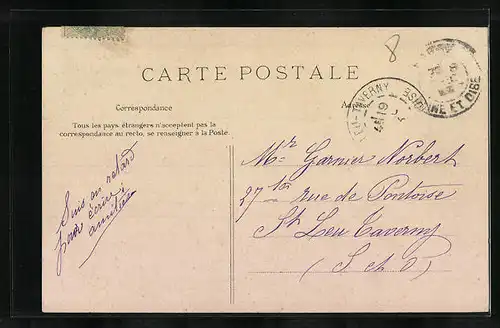 CARTE POSTALE
Correspondance
Tous les pays étrangers n'acceptent pas la
correspondance au recto, se renseigner à la Poste
Adresse
8
TAVERNY
19
SEINE ET OISE
Suis en retard
pour écrire;
amitiés
Mr Garnier Norbert
27 bis rue de Pontoise
St Leu Taverny
(S et O)